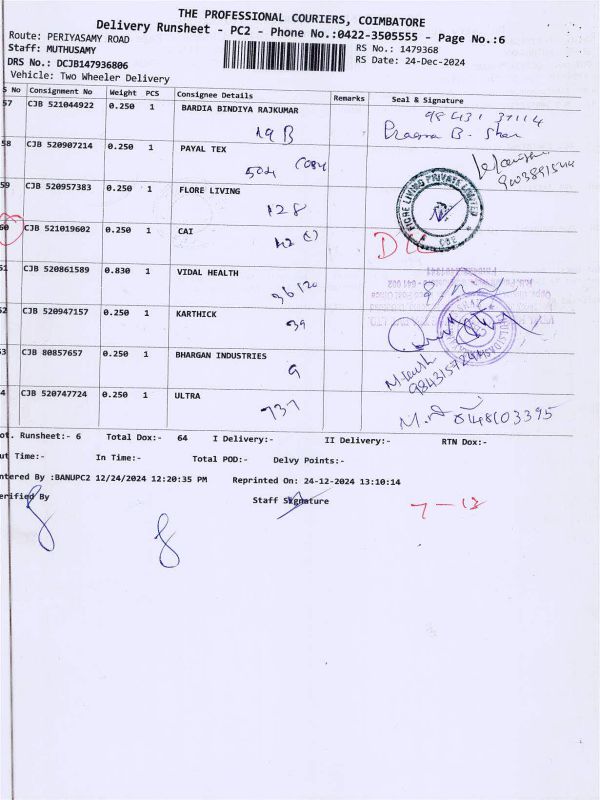 THE PROFESSIONAL COURIERS, COIMBATORE
Delivery Runsheet - PC2 - Phone No.:0422-3505555 - Page No.:6
Route: PERIYASAMY ROAD
RS No.: 1479368
Staff: MUTHUSAMY
RS Date: 24-Dec-2024
DRS No.: DCJB147936806
Vehicle: Two Wheeler Delivery
S No Consignment No Weight PCS Consignee Details Remarks Seal & Signature
57 CJB 521044922 0.250 1 BARDIA BINDIYA RAJKUMAR
98431 37114
19 B
58 CJB 520907214 0.250 1 PAYAL TEX
504
9003891544
59 CJB 520957383 0.250 1 FLORE LIVING
128
FIORE LIVING PRIVATE LIMITED
60 CJB 521019602 0.250 1 CAI
61 CJB 520861589 0.830 1 VIDAL HEALTH
36 120
62 CJB 520947157 0.250 1 KARTHICK
39
63 CJB 80857657 0.250 1 BHARGAN INDUSTRIES
9
64 CJB 520747724 0.250 1 ULTRA
737
Tot. Runsheet:- 6 Total Dox:- 64 I Delivery:- II Delivery:- RTN Dox:-
Out Time:- In Time:- Total POD:- Delvy Points:-
Entered By :BANUPC2 12/24/2024 12:20:35 PM Reprinted On: 24-12-2024 13:10:14
Verified By Staff Signature
7-12